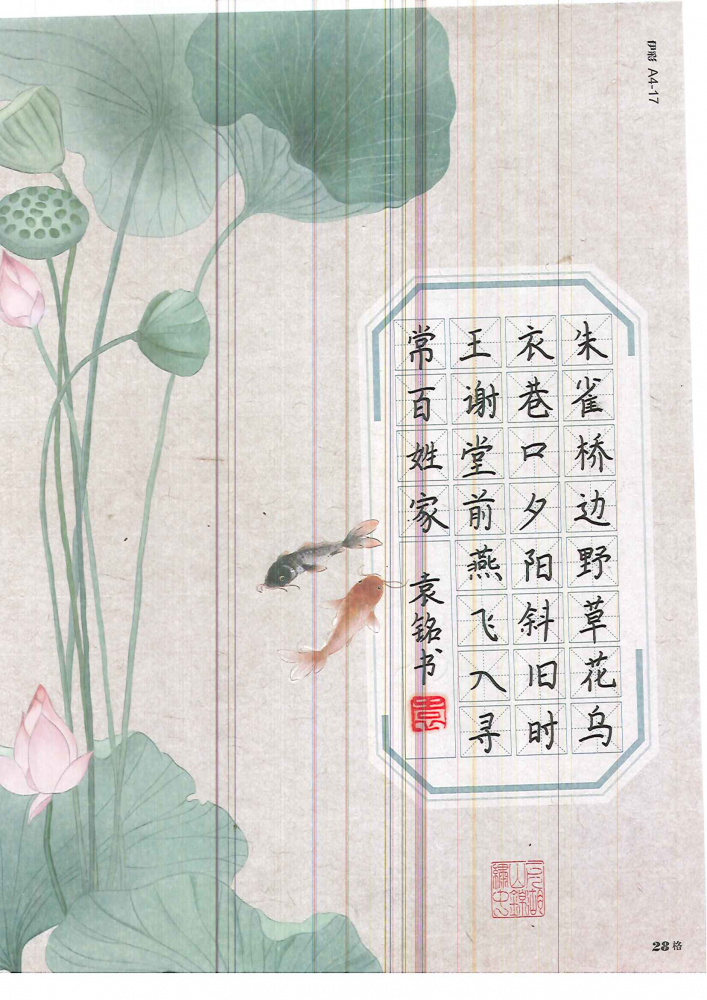 伊彩 A4-17
朱雀桥边野草花乌
衣巷口夕阳斜旧时
王谢堂前燕飞入寻
常百姓家
袁铭书
28格